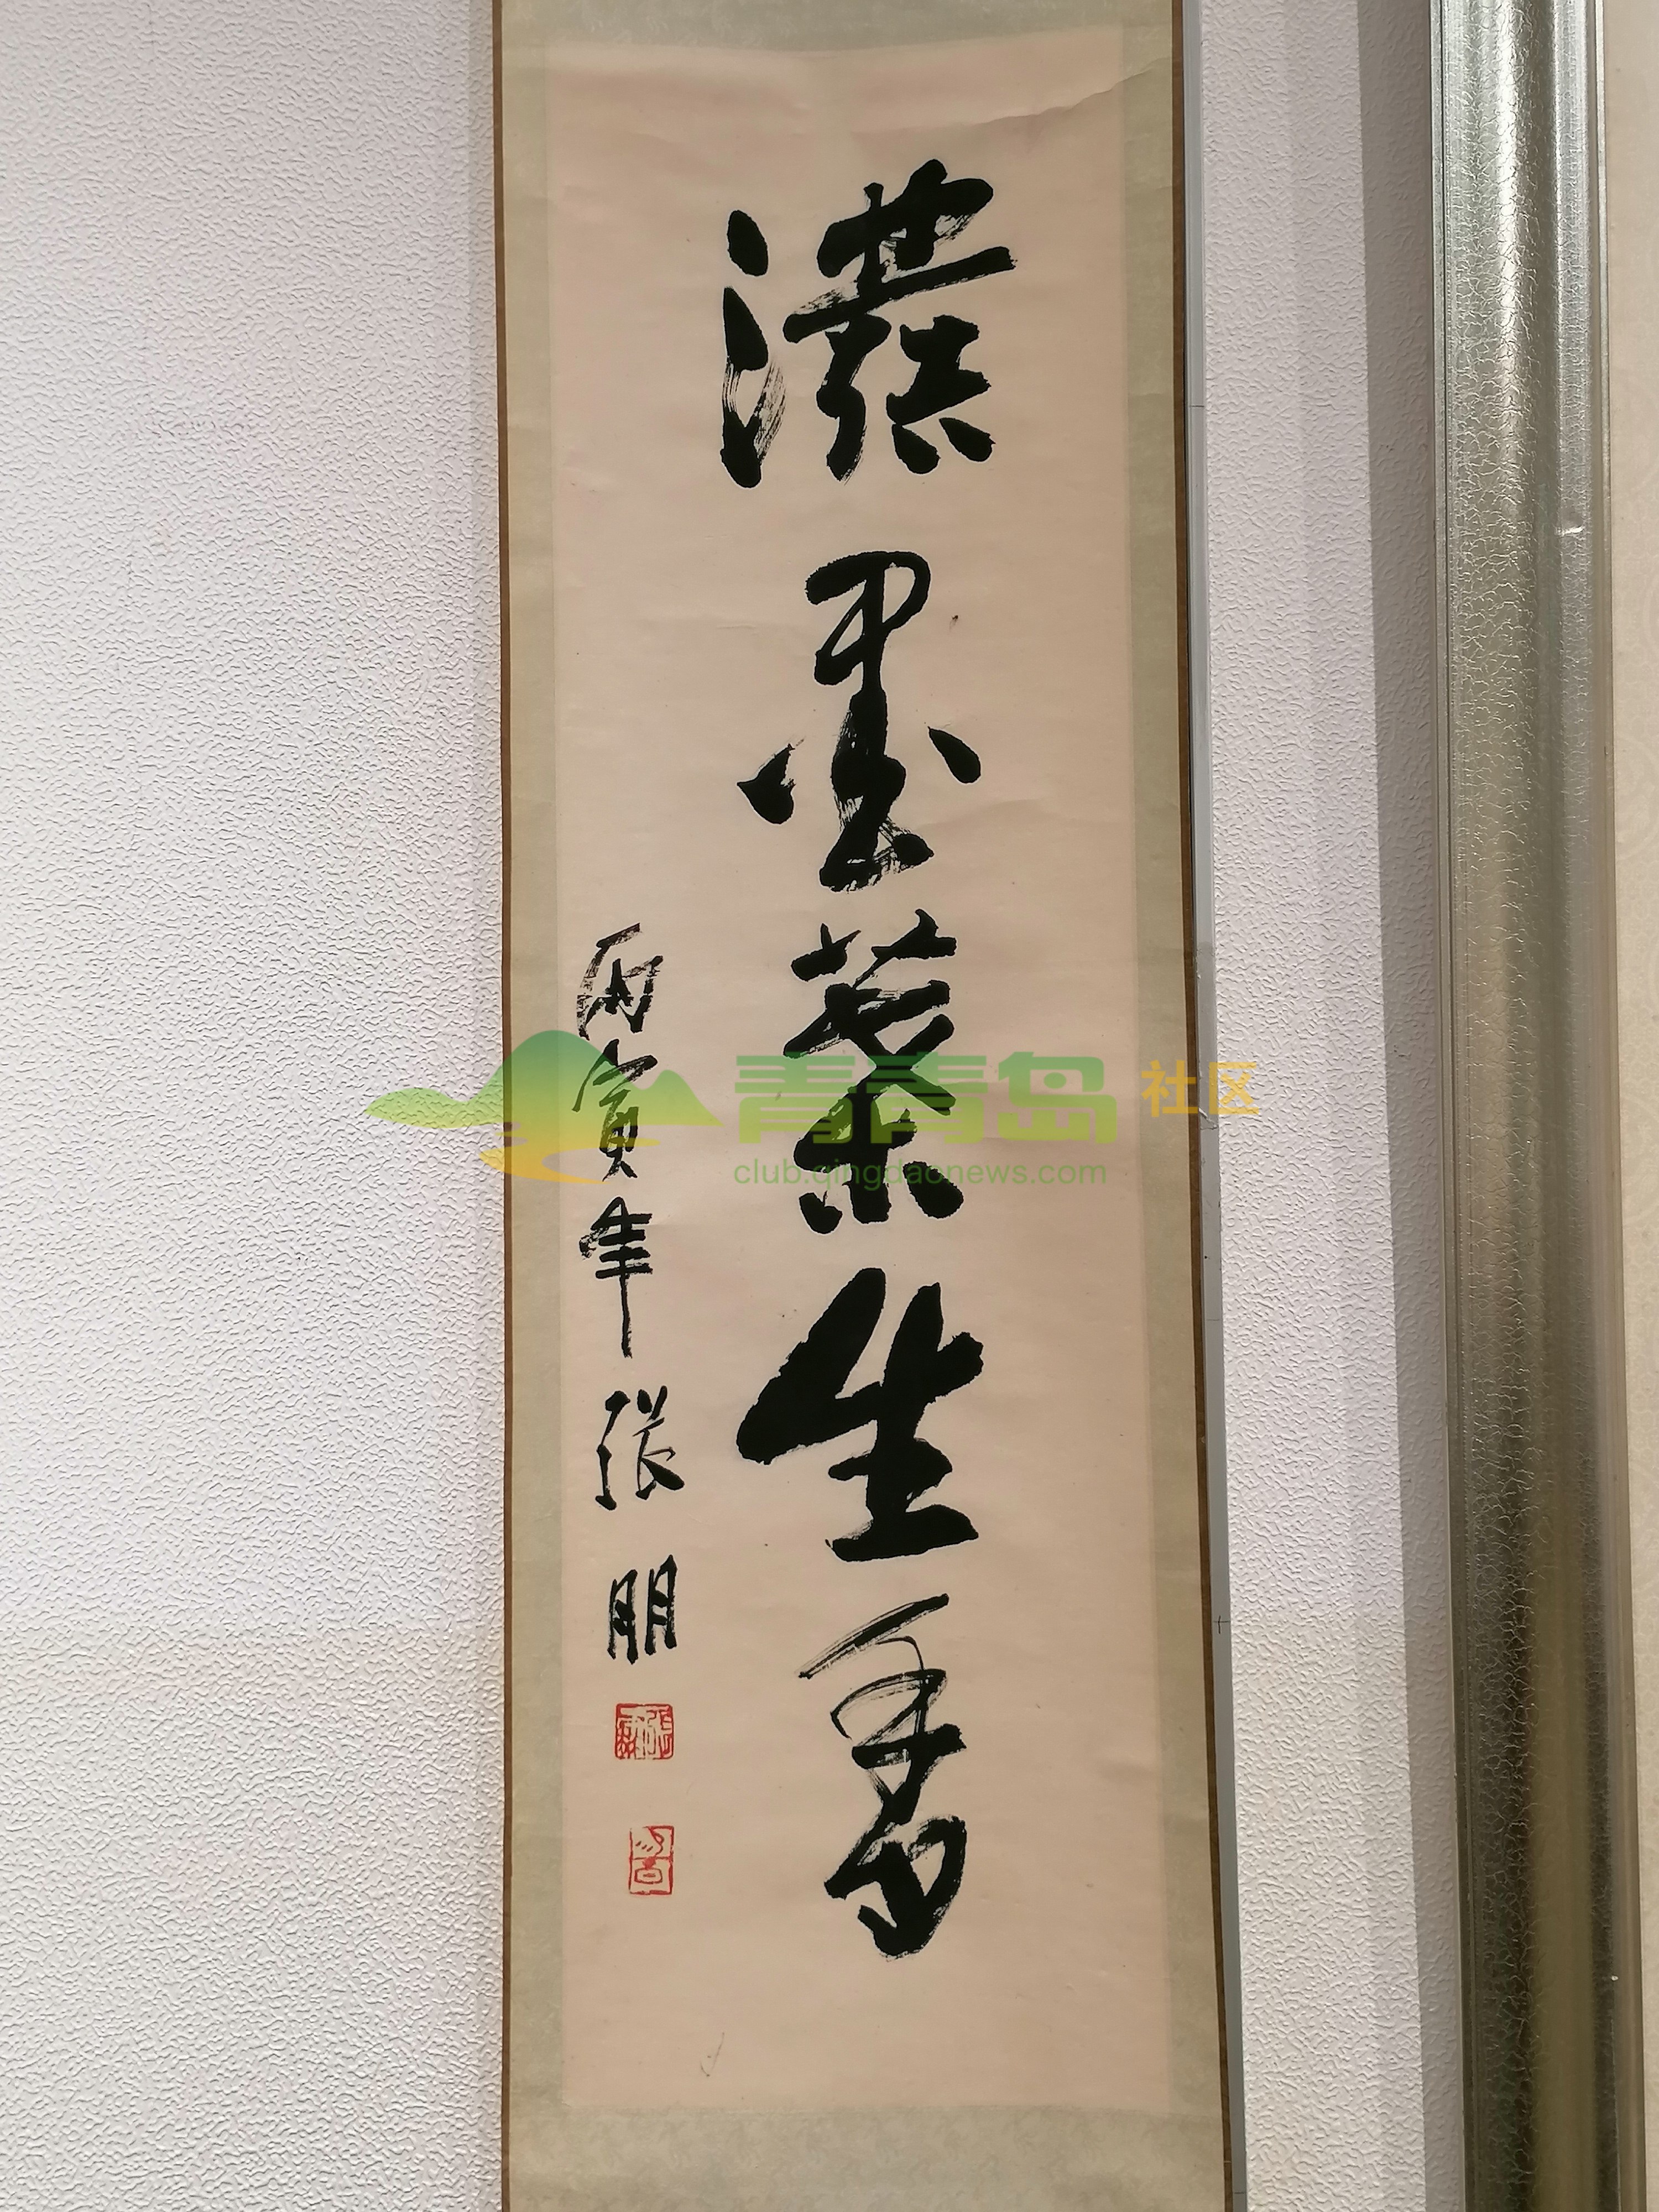 濃墨生香
丙寅年 張朋
青青岛社区
club.qingdaonews.com